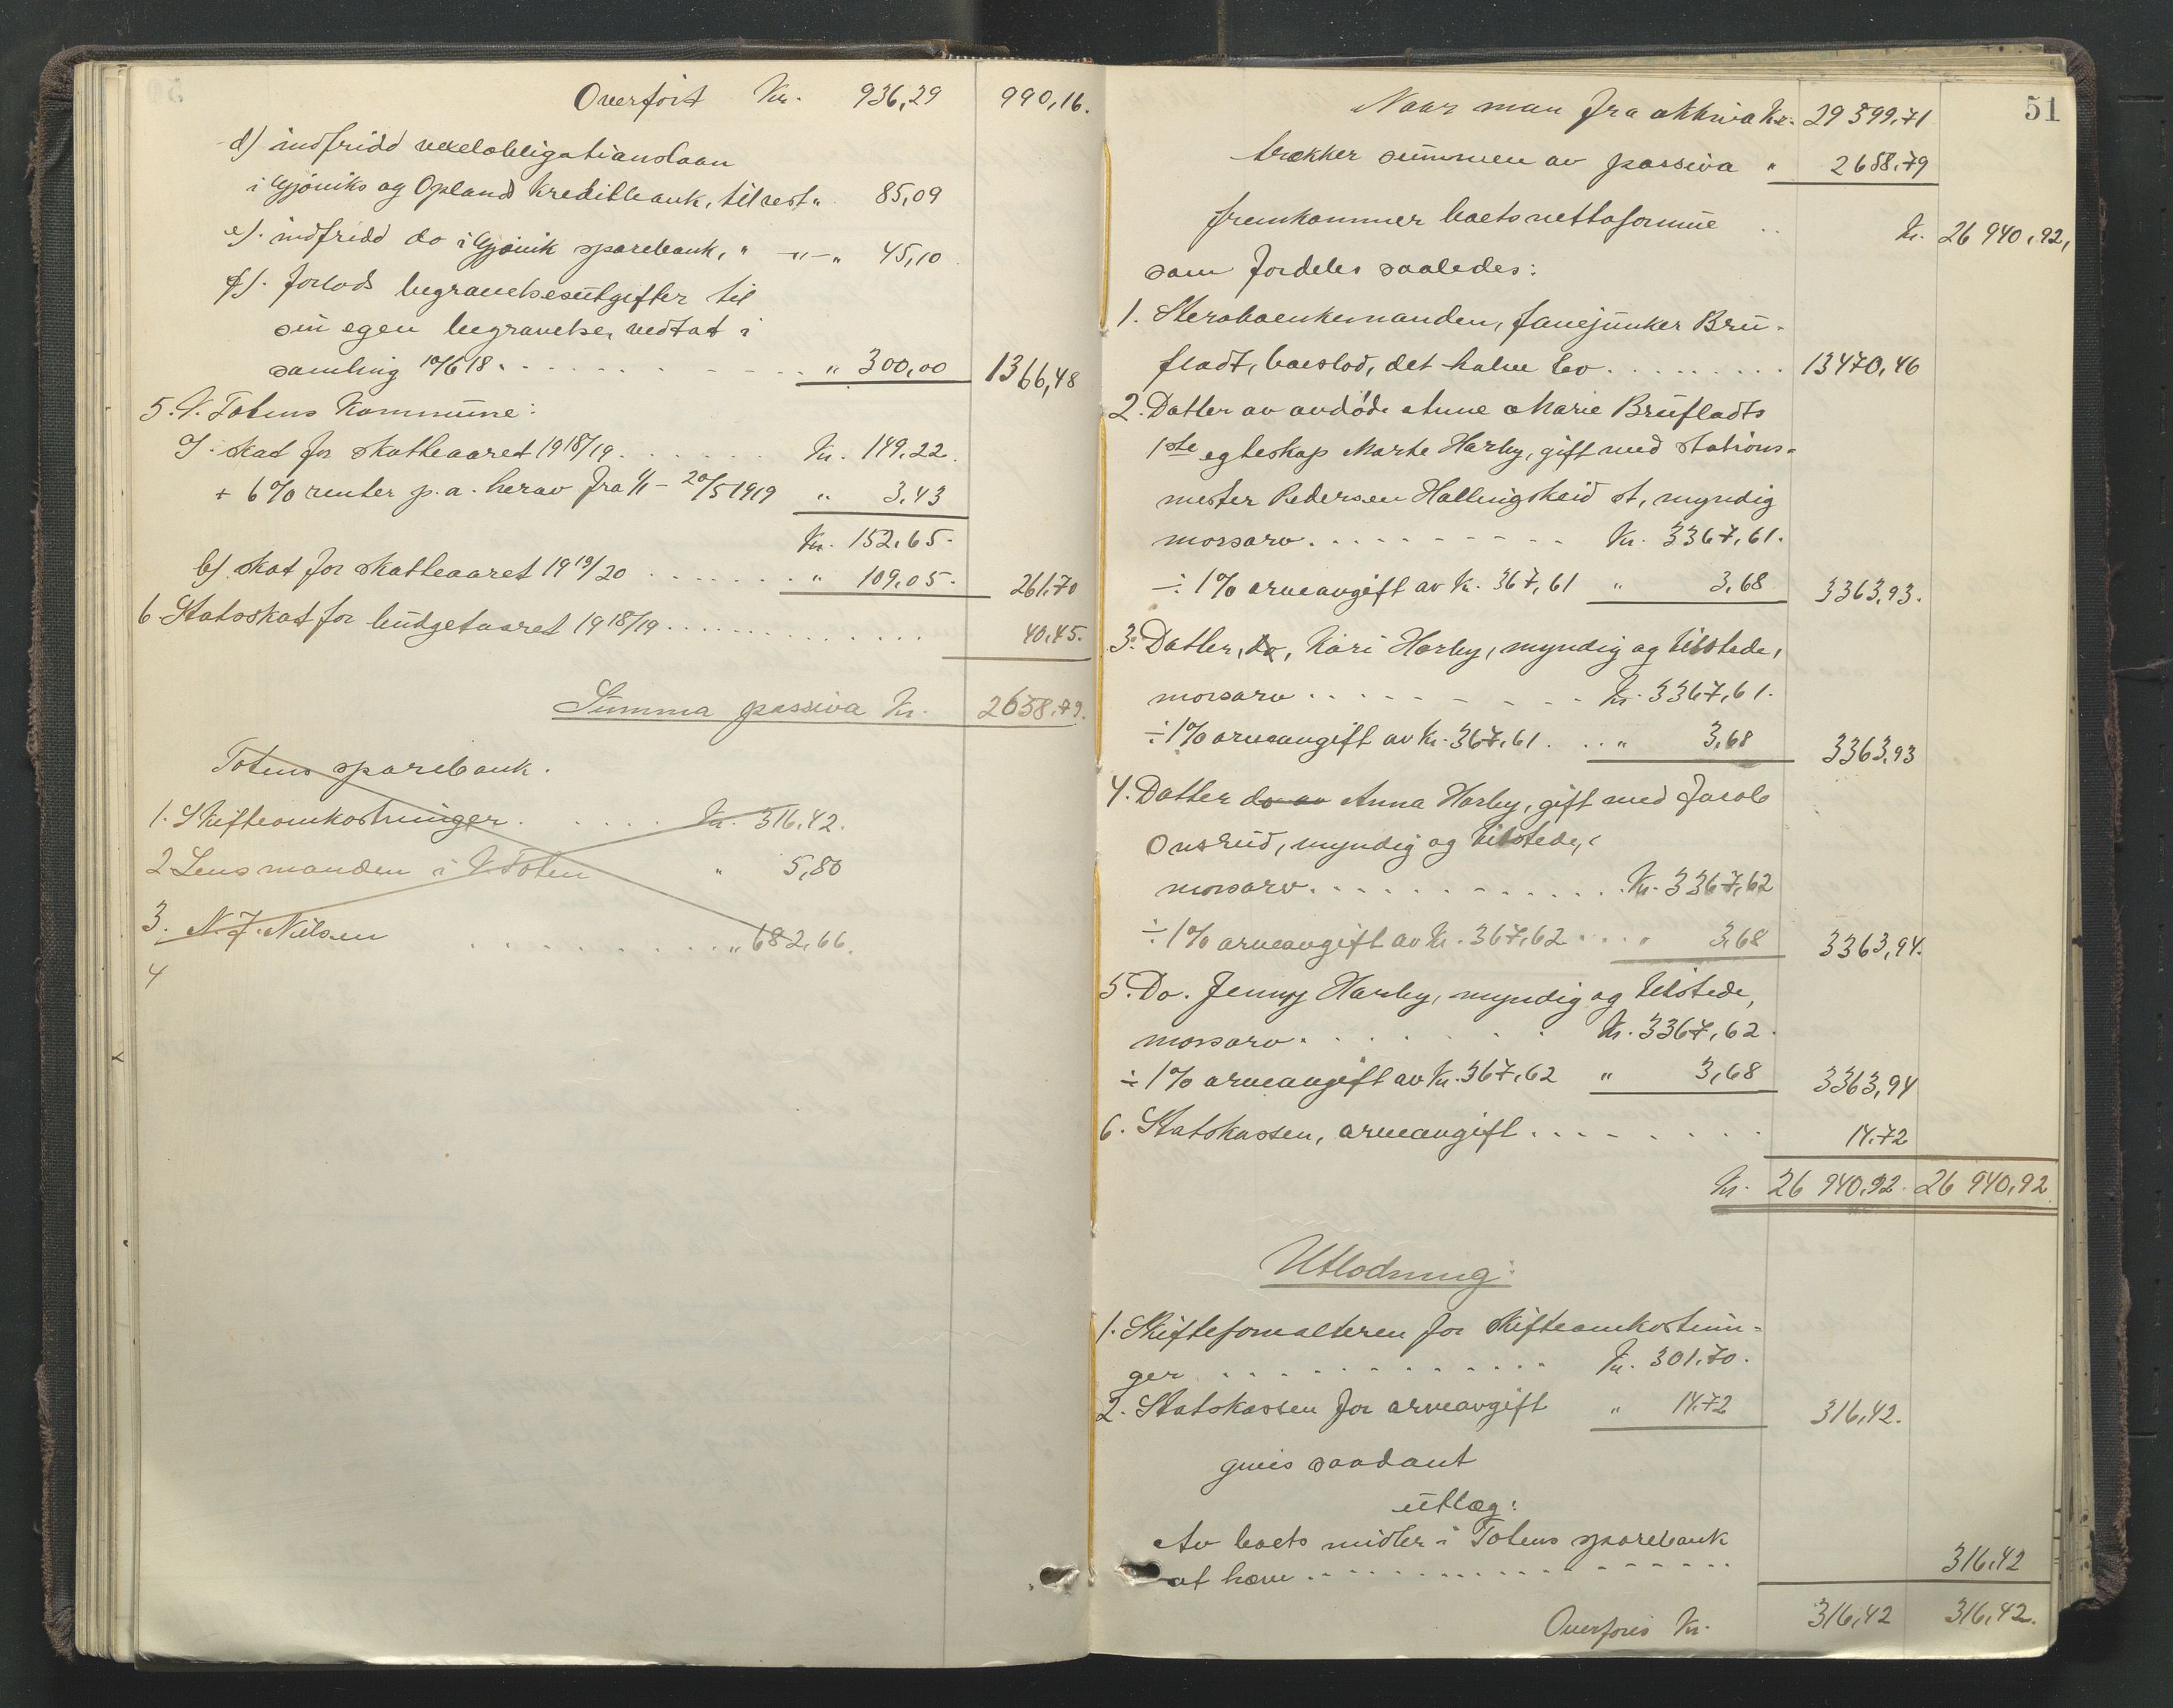 Overført Kr. 936,29 990,16.
d) indfridd vexelobligationslaan
i Gjøviks og Oplands Kreditbank, til rest „ 85,09
e). indfridd do i Gjøvik sparebank, " —„—„ 45,10
f). forlods begravelsesutgifter til
sin egen begravelse, vedtat i
samling 10/6 18. . . . . . . . . . „ 300,00 1366,48
5. V. Totens Kommune:
a). Skat for skatteaaret 1918/19. . . . . . Kr. 149,22.
+ 6% renter p.a. herav fra 1/1 – 20/5 1919 „ 3,43
Kr. 152,65.
b) Skat for skatteaaret 1919/20 . . . . . . . „ 109,05. 261,70
6. Statsskat for budgetaaret 1918/19 . . . . . . . . . . . . . 40,45.
Summa passiva Kr. 2658,79.
Totens sparebank.
1. Skifteomkostninger . . . . . . Kr. 316,42.
2 Lensmanden i V. Toten „ 5,80
3. N. J. Nilsen . . . . . . . . . . „ 682,66.
4
51
Naar man fra aktiva Kr. 29 599,71
trækker summen av passiva „ 2658,79
fremkommer boets nettoformue . . Kr. 26 940,92,
som fordeles saaledes:
1. Sterboenkemanden, fanejunker Bru-
fladt, boeslod, det halve bo . . . . . . . . . 13470,46
2. Datter av avdøde Anne Marie Brufladts
1ste egteskap Marte Harby, gift med stations-
mester Pedersen Hallingskeid st, myndig
morsarv. . . . . . . . . . Kr. 3367,61.
÷ 1% arveavgift av Kr. 367,61 „ 3,68 3363,93.
3. Datter, do, Kari Harby, myndig og tilstede,
morsarv . . . . . . . . . Kr. 3367,61.
÷ 1% arveavgift av Kr. 367,61 . . . „ 3,68 3363,93
4. Datter do av Anna Harby, gift med Jacob
Onsrud, myndig og tilstede,
morsarv. . . . . . . . . . . . . Kr. 3367,62
÷ 1% arveavgift av Kr. 367,62 . . . „ 3,68 3363,94.
5. Do. Jenny Harby, myndig og tilstede,
morsarv. . . . . . . Kr. 3367,62.
÷ 1% arveavgift av Kr. 367,62 „ 3,68 3363,94
6. Statskassen, arveavgift . . . . . . . . 14,72
Kr. 26 940,92. 26 940,92
Utlodning:
1. Skifteforvalteren for skifteomkostnin-
ger . . . . . . . . . . . . Kr. 301,70.
2. Statskassen for arveavgift „ 14,72 316,42.
gives saadant
utlæg:
Av boets midler i Totens sparebank
at hæve . . . . . . . . . . . . . . . . 316,42
Overføres Kr. 316,42 316,42.